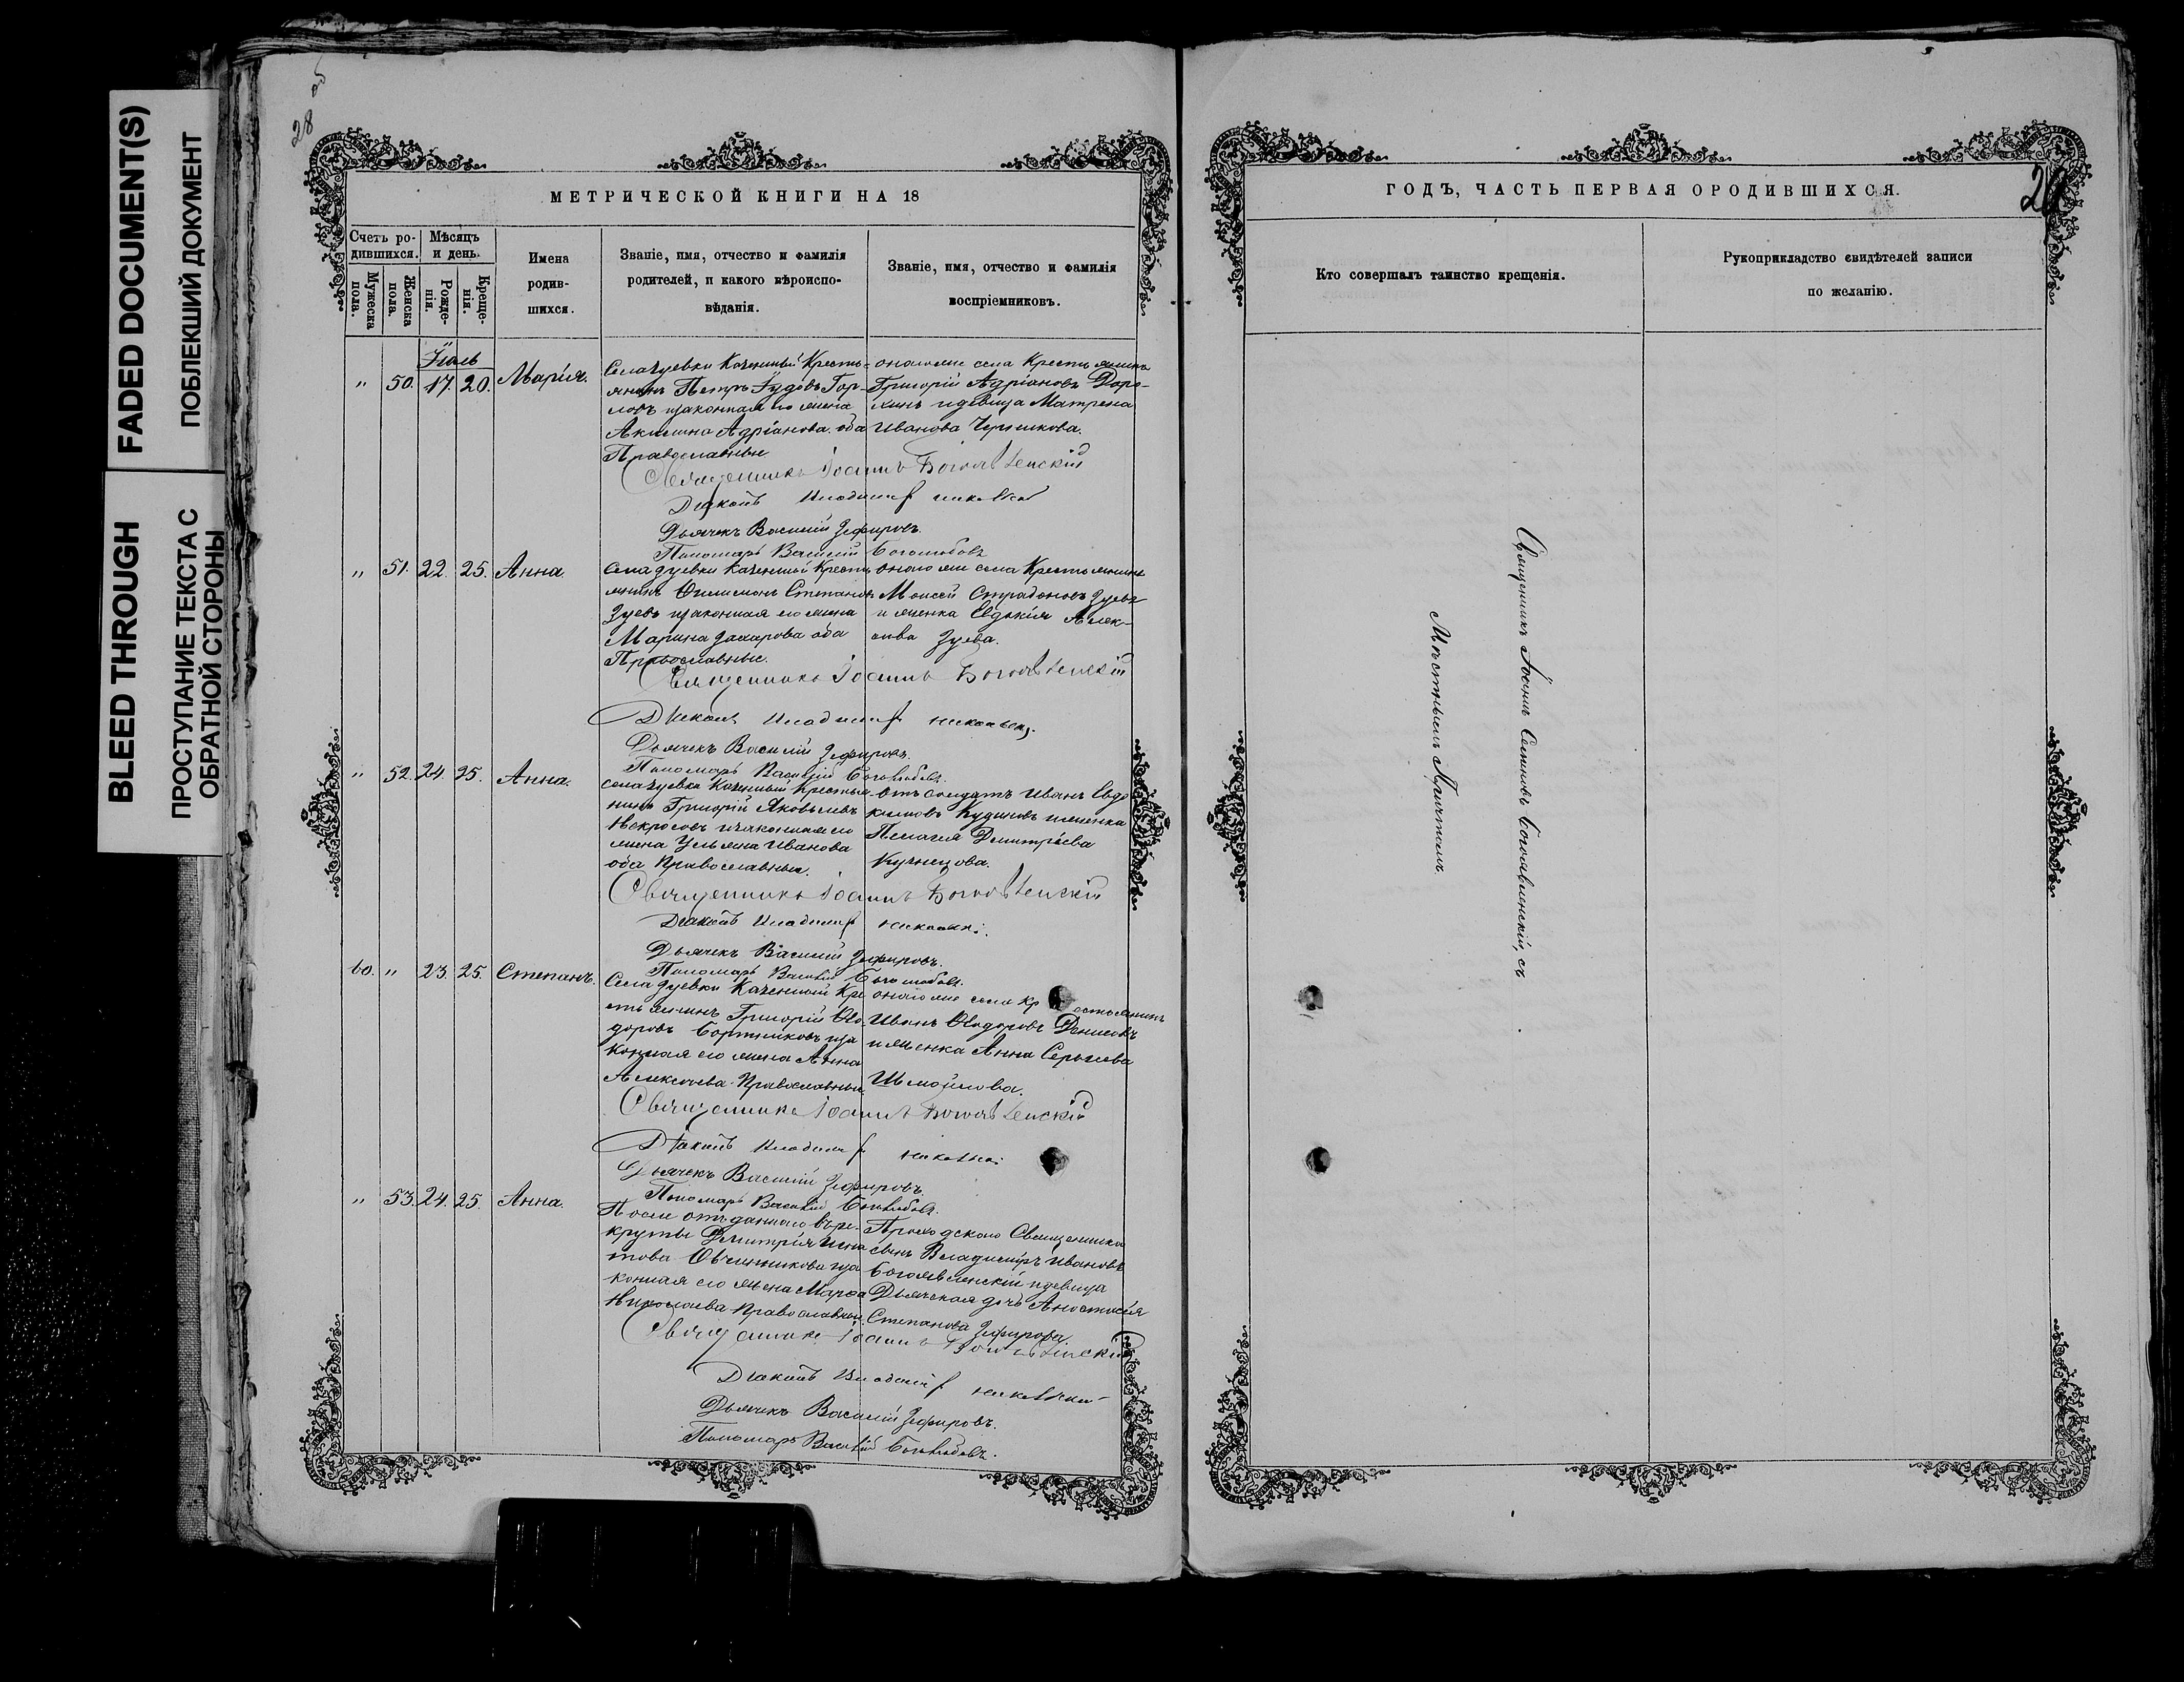 FADED DOCUMENT(S)
ПОБЛЕКШИЙ ДОКУМЕНТ
BLEED THROUGH
ПРОСТУПАНИЕ ТЕКСТА С
ОБРАТНОЙ СТОРОНЫ
28 об
МЕТРИЧЕСКОЙ КНИГИ НА 18
Счетъ ро-
дившихся.
Мѣсяцъ
и день.
Мужеска
пола.
Женска
пола.
Рожде-
нія.
Креще-
нія.
Имена
родив-
шихся.
Званіе, имя, отчество и фамилія
родителей, и какого вѣроиспо-
вѣданія.
Званіе, имя, отчество и фамилія
воспріемниковъ.
Іюль
" 50. 17. 20. Марія.
Села Зуевки Казенный Кресть-
янинъ Петръ Іудовъ Гор-
ловъ изаконная его жена
Акилина Адріанова. оба
Православные
оногоже села Крестьянинъ
Григорій Адріановъ Доро-
хинъ и девица Матрена
Иванова
Священникъ Іоаннъ Богоявленскій
Діаконъ Владимиръ
Дьячекъ Василій Зефировъ.
Пономарь Василій Боголюбовъ
" 51. 22. 25. Анна.
Села Зуевки Казенный Кресть
янинъ Филимонъ Степановъ
Зуевъ изаконная его жена
Марина Захарова оба
Православные.
оного же села Крестьянинъ
Моисей Зуевъ
и женка Евдокія Алек-
еива Зуева.
Священникъ Іоаннъ Богоявленскій
Діаконъ Владимиръ
Дьячекъ Василій Зефировъ.
Пономарь Василій Боголюбовъ.
" 52. 24. 25. Анна.
Села Зуевки Казенный Крестья
нинъ Григорій Яковлевъ
Некрасовъ изаконная его
жена Ульяна Иванова
оба Православные.
солдатъ Иванъ Евдо
кимовъ Кудиновъ иженка
Пелагея Димитріева
Кузнецова.
Священникъ Іоаннъ Богоявленскій
Діаконъ Владимиръ
Дьячекъ Василій Зефировъ.
Пономарь Василій Боголюбовъ.
60. " 23. 25. Степанъ.
Села Зуевки Казенный Кре
стьянинъ Григорій Ѳео-
доровъ Бортниковъ иза
конная его жена Анна
Алексеева Православные
оногоже села Крестьянинъ
Иванъ Ѳеодоровъ Денисовъ
иженка Анна Сергеева
Шмойлова.
Священникъ Іоаннъ Богоявленскій
Діаконъ Владимиръ
Дьячекъ Василій Зефировъ.
Пономарь Василій Боголюбовъ.
" 53. 24. 25. Анна.
После отъданного въре-
круты Димитрія Игна
това Овчинникова иза
конная его жена Марѳа
Николаева Православной
Приходского Священника
сынъ Владимиръ Ивановъ
Богоявленскій идевица
Дьячская дочь Анастасія
Степанова Зефирова.
Священникъ Іоаннъ Богоявленскій
Діаконъ Владимиръ
Дьячекъ Василій Зефировъ.
Пономарь Василій Боголюбовъ.
ГОДЪ, ЧАСТЬ ПЕРВАЯ О РОДИВШИХСЯ.
29
Кто совершалъ таинство крещенія.
Рукоприкладство свидѣтелей записи
по желанію.
Священникъ Іоаннъ Семеновъ Богоявленскій, съ
Мѣстнымъ Причтомъ